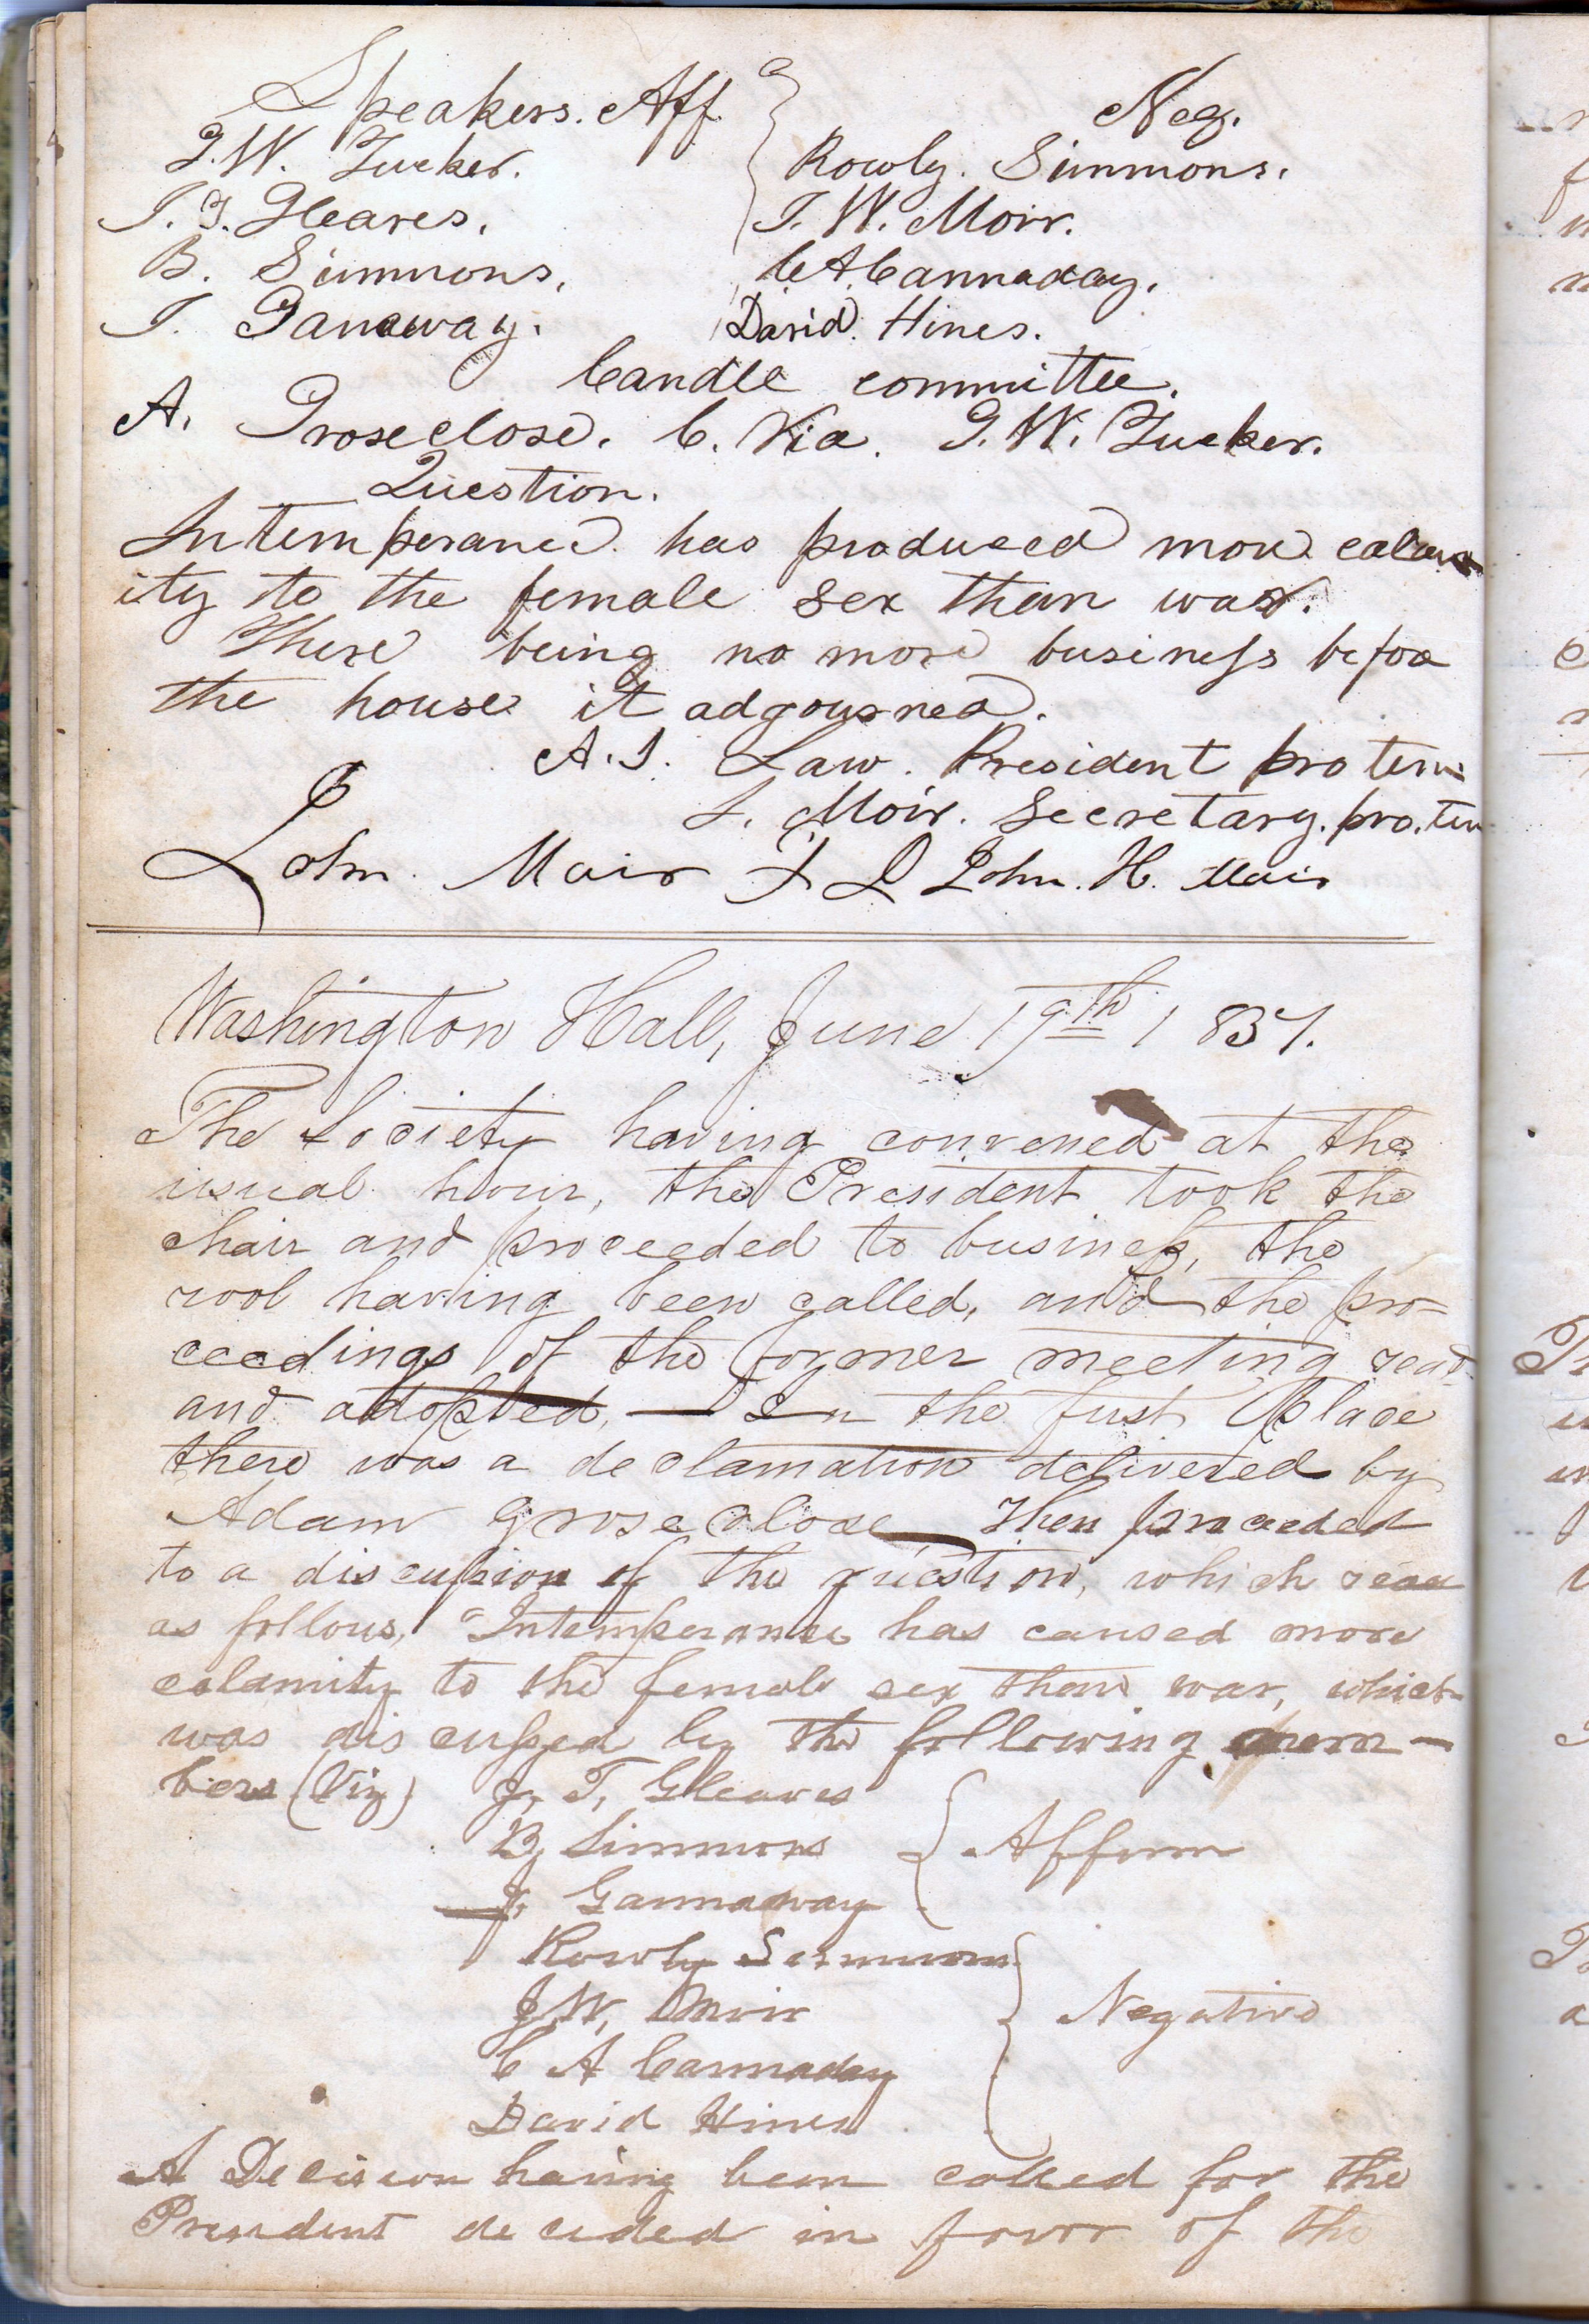 Speakers. Aff. Neg.
G. W. Tucker. Rowly. Simmons.
J. T. Gleaves. J. W. Moir.
B. Simmons. C. A. Cannaday.
J. Ganaway. David. Hines.
Candle committee.
A. Groseclose. C. Via. G. W. Tucker.
Question.
Intemperance has produced more calam
ity to the female sex than war.
There being no more business before
the house it adgourned.
A. S. Law. President pro tem
J. Moir. Secretary. pro. tem
John. Moir John. H. Moir
Washington Hall, June 19th 1837.
The Society having convened at the
usual hour, the President took the
chair and proceeded to business, the
rool having been called, and the pro=
ceedings of the former meeting read
and adopted, — In the first place
there was a declamation delivered by
Adam Groseclose — Then proceeded
to a discussion of the question, which read
as follows, "Intemperance has caused more
calamity to the female sex than war, which
was discussed by the following mem-
bers (Viz) J, T, Gleaves
B, Simmons Affirm
J, Gannaway
Rowly Simmons
J, W, Moir Negative
C A Cannaday
David Hines
A Decision having been called for the
President decided in favor of the